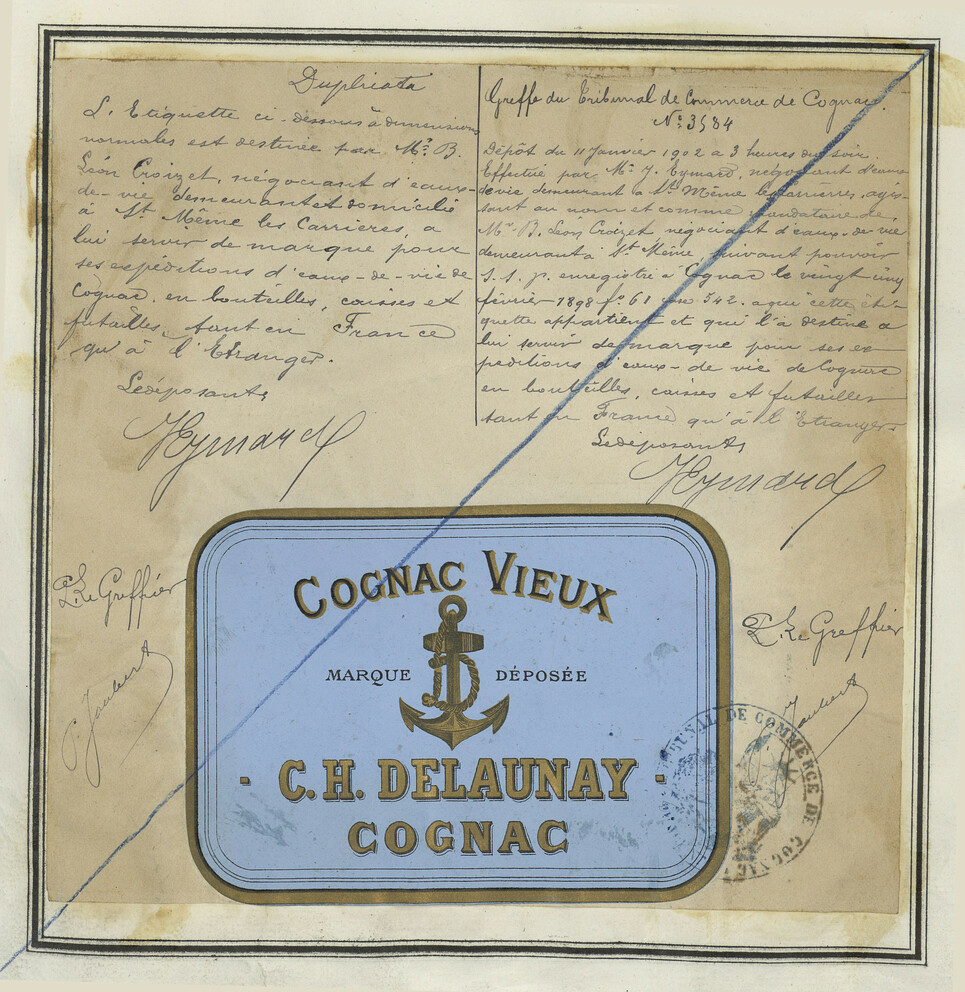 Duplicata
L'Etiquette ci-dessous à dimensions
normales est destinée par Mr. B.
Léon Croizet, négociant d'eaux-
de-vie demeurant et domicilié
à St Même les Carrières, a
lui servir de marque pour
ses expéditions d'eaux-de-vie de
Cognac en bouteilles, caisses et
futailles, tant en France
qu'à l'Etranger.
Le déposant,
JEymard
Greffe du Tribunal de Commerce de Cognac.
No. 3584
Dépôt du 11 Janvier 1902 a 3 heures du soir.
Effectué par Mr. J. Eymard, négociant d'eaux-
de vie demeurant à St. Même les Carrières, agis-
sant au nom et comme mandataire de
Mr. B. Léon Croizet négociant d'eaux-de-vie
demeurant à St. Même, suivant pouvoir
S.S.p. enregistré à Cognac le vingt cinq
février 1898 fo. 61 542. a qui cette éti-
quette appartient et qui l'a destine a
lui servir de marque pour ses ex-
péditions d'eaux-de vie de Cognac
en bouteilles, caisses et futailles
tant en France qu'à l'Etranger.
Le déposant,
JEymard
Le Greffier
P. Jaubert
COGNAC VIEUX
MARQUE DÉPOSÉE
- C.H. DELAUNAY -
COGNAC
Le Greffier
Jaubert
TRIBUNAL DE COMMERCE DE COGNAC